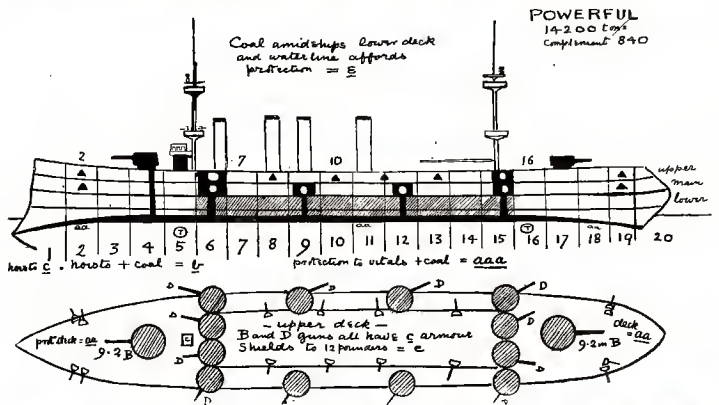 POWERFUL
14200 tons
Complement 840
Coal amidships lower deck
and waterline affords
protection = E
2
7
10
16
upper
main
lower
aa
aa
aa
T
T
1 2 3 4 5 6 7 8 9 10 11 12 13 14 15 16 17 18 19 20
hoists c . hoists + coal = b
protection to vitals + coal = aaa
D
D
D
D
D
D
- upper deck -
B and D guns all have c armour
Shields to 12 pounders = e
prot. deck = aa
9.2 B
c
D
D
deck
= aa
9.2 in B
D
D